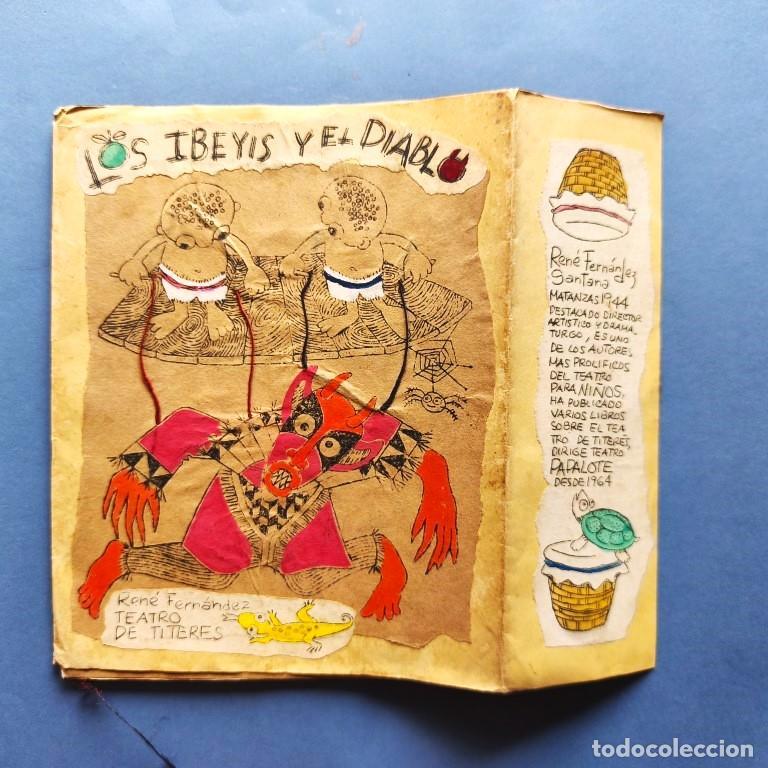 LOS IBEYIS Y EL DIABLO
René Fernández
TEATRO
DE TITERES
René Fernández
Santana
MATANZAS 1944
DESTACADO DIRECTOR
ARTISTICO Y DRAMA
TURGO, ES UNO
DE LOS AUTORES
MAS PROLIFICOS
DEL TEATRO
PARA NIÑOS,
HA PUBLICADO
VARIOS LIBROS
SOBRE EL TEA
TRO DE TITERES,
DIRIGE TEATRO
PAPALOTE
DESDE 1964
todocoleccion